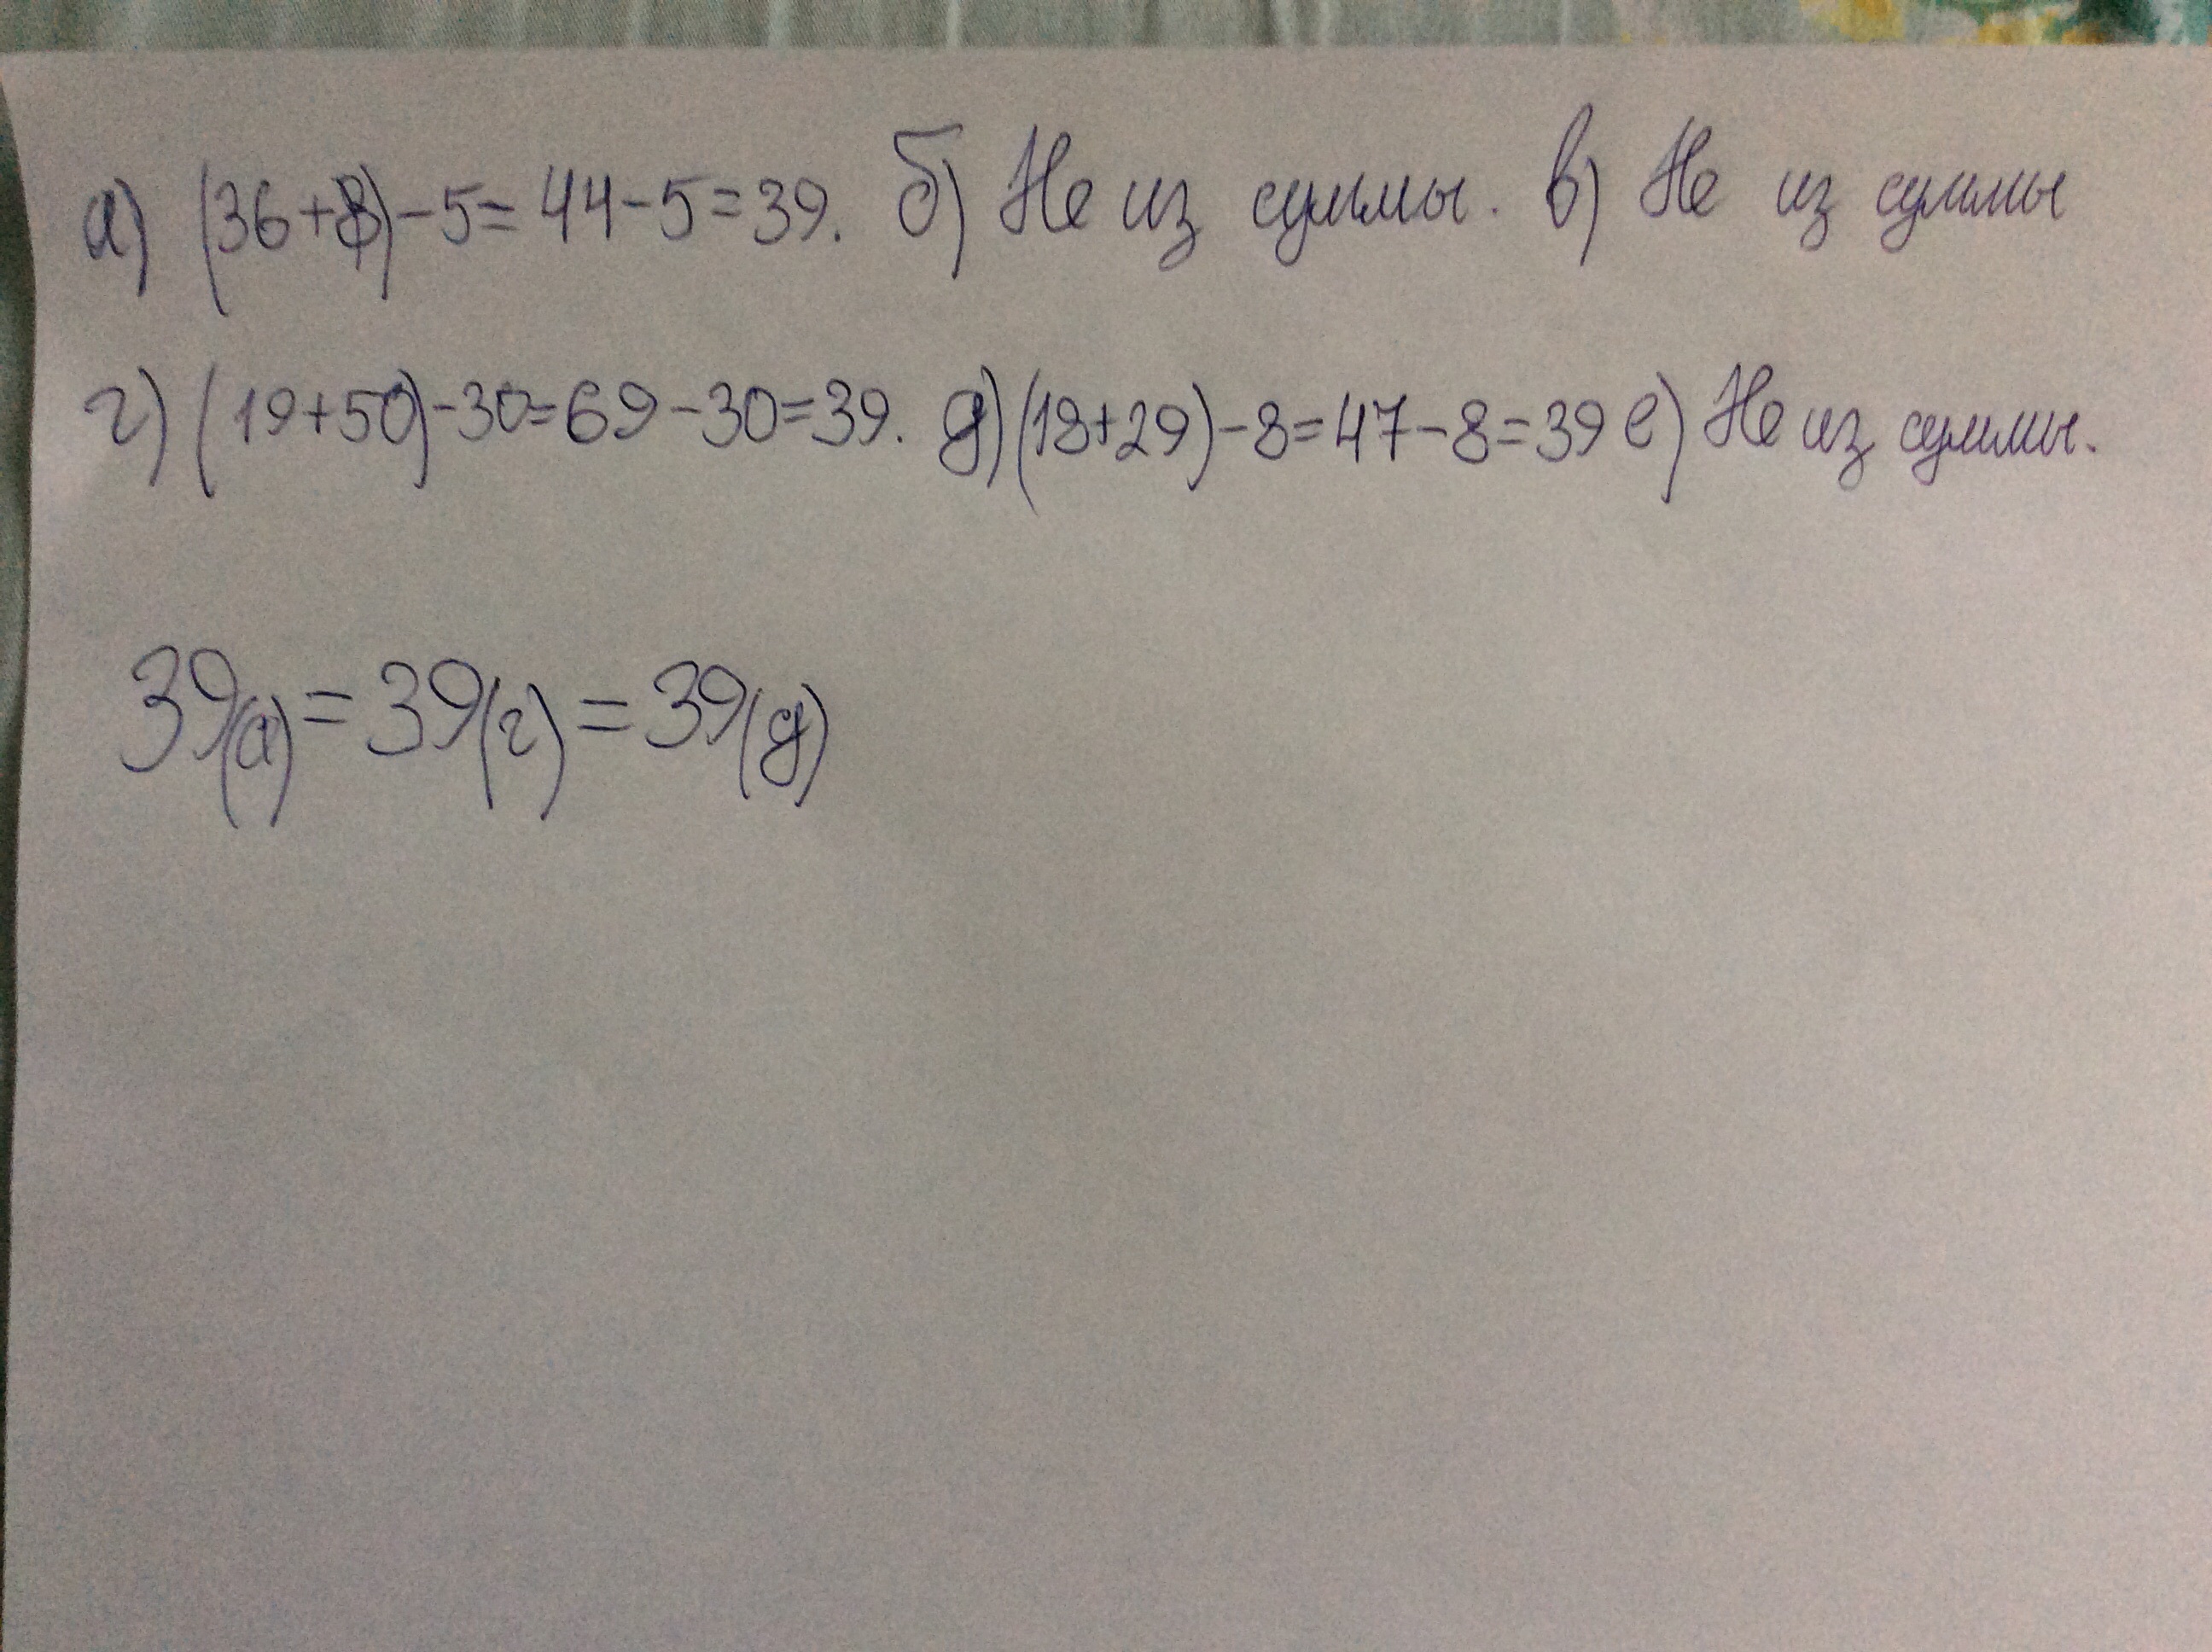 а) (36+8)-5=44-5=39. б) Не из суммы. в) Не из суммы
г) (19+50)-30=69-30=39. д) (18+29)-8=47-8=39 е) Не из суммы.
39(а)=39(г)=39(д)